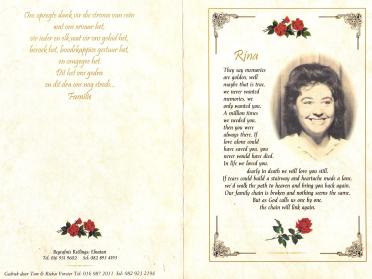 Ons opregte dank vir die strome van reën
wat ons ervaar het,
vir ieder en elk wat vir ons gebid het,
besoek het, boodskappies gestuur het,
en omgegee het.
Dit het ons gedra
en dit dra ons nog steeds...
Familie
Begrafnis Reëlings: Elmatan
Tel. 016 931 9602 Sel: 082 893 4193
Gedruk deur Tom & Riekie Vorster Tel: 016 987 2011 Sel: 082 923 2194
Rina
They say memories
are golden, well
maybe that is true,
we never wanted
memories, we
only wanted you.
A million times
we needed you,
then you were
always there. If
love alone could
have saved you, you
never would have died.
In life we loved you,
dearly in death we will love you still.
If tears could build a stairway and heartache made a lane,
we'd walk the path to heaven and bring you back again.
Our family chain is broken and nothing seems the same,
But as God calls us one by one
the chain will link again.